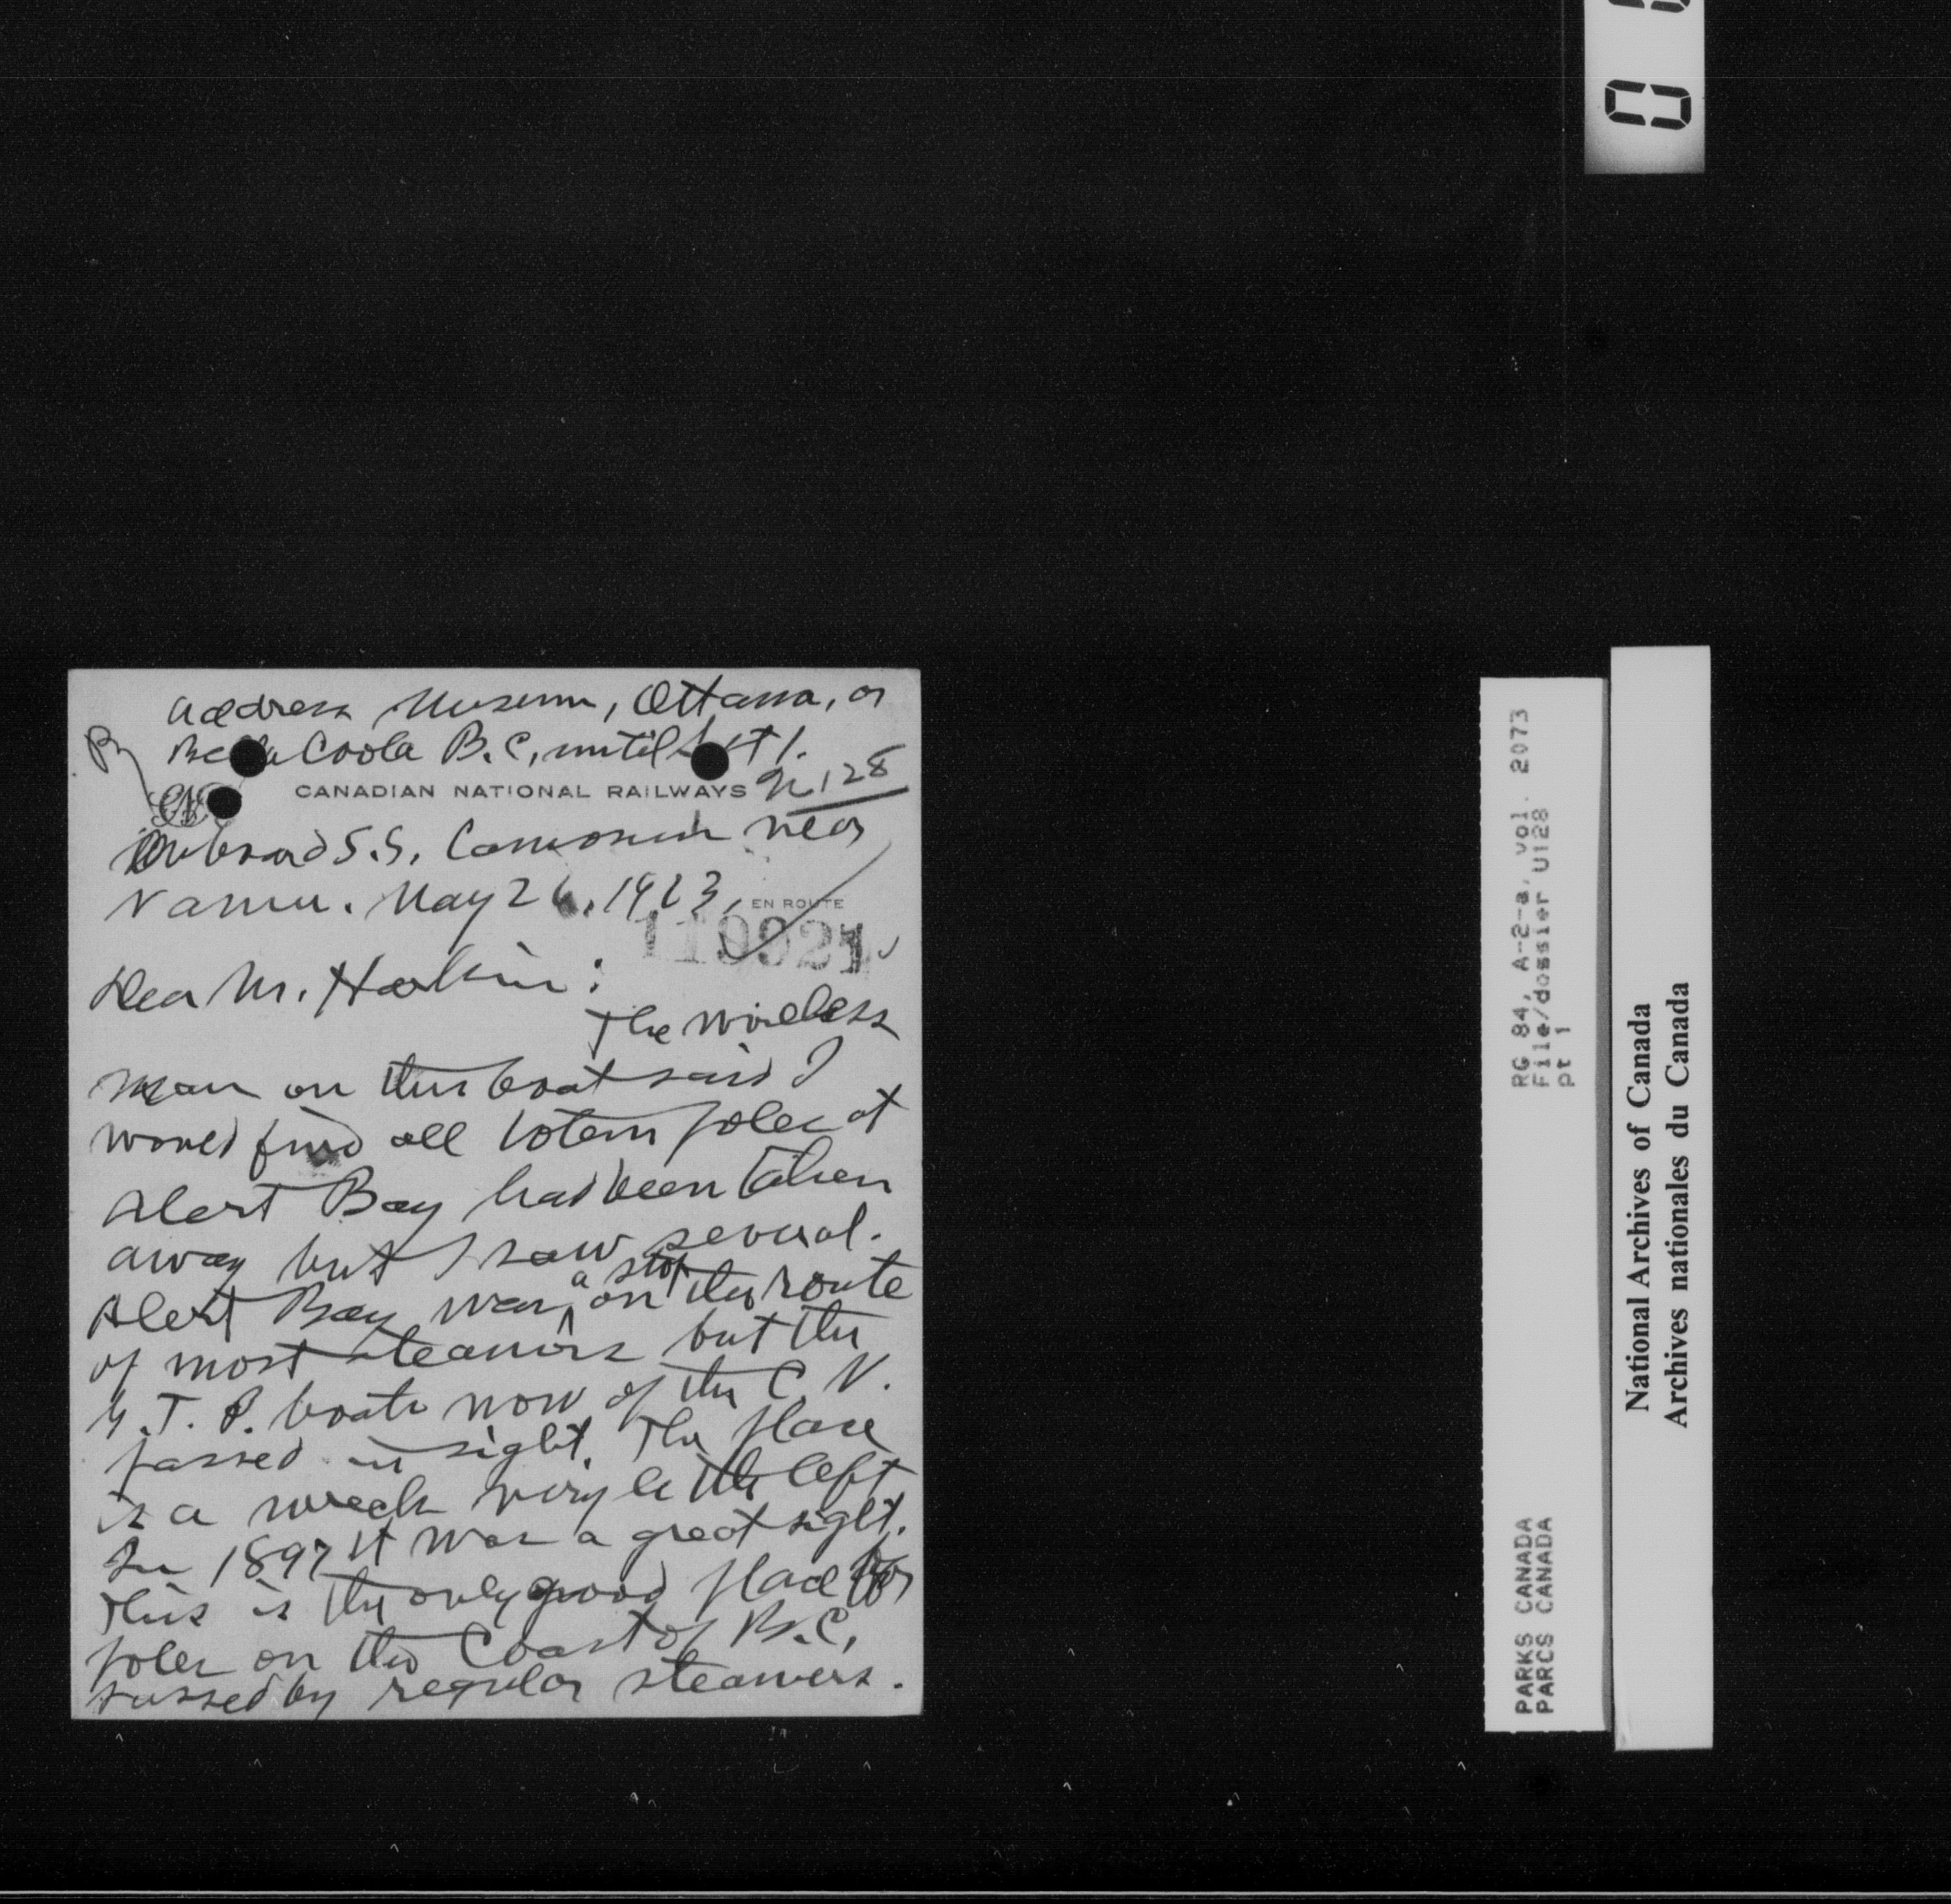 Address Museum, Ottawa, or
Bella Coola B.C, until Sept 1.
CANADIAN NATIONAL RAILWAYS
U.128
On board S.S. Camosun near
Namu. May 26, 1923,
EN ROUTE
119921
Dear Mr. Harkin:
The wireless
man on this boat said I
would find all totem poles at
Alert Bay had been taken
away but I saw several.
Alert Bay was a stop on the route
of most steamers but the
G.T.P. boats now of the C.N.
passed in sight. The place
is a wreck very little left
In 1897 it was a great sight.
This is the only good place for
poles on the Coast of B.C.
passed by regular steamers.
RG 84, A-2-a, vol. 2073
File/dossier U128
pt 1
PARKS CANADA
PARCS CANADA
National Archives of Canada
Archives nationales du Canada